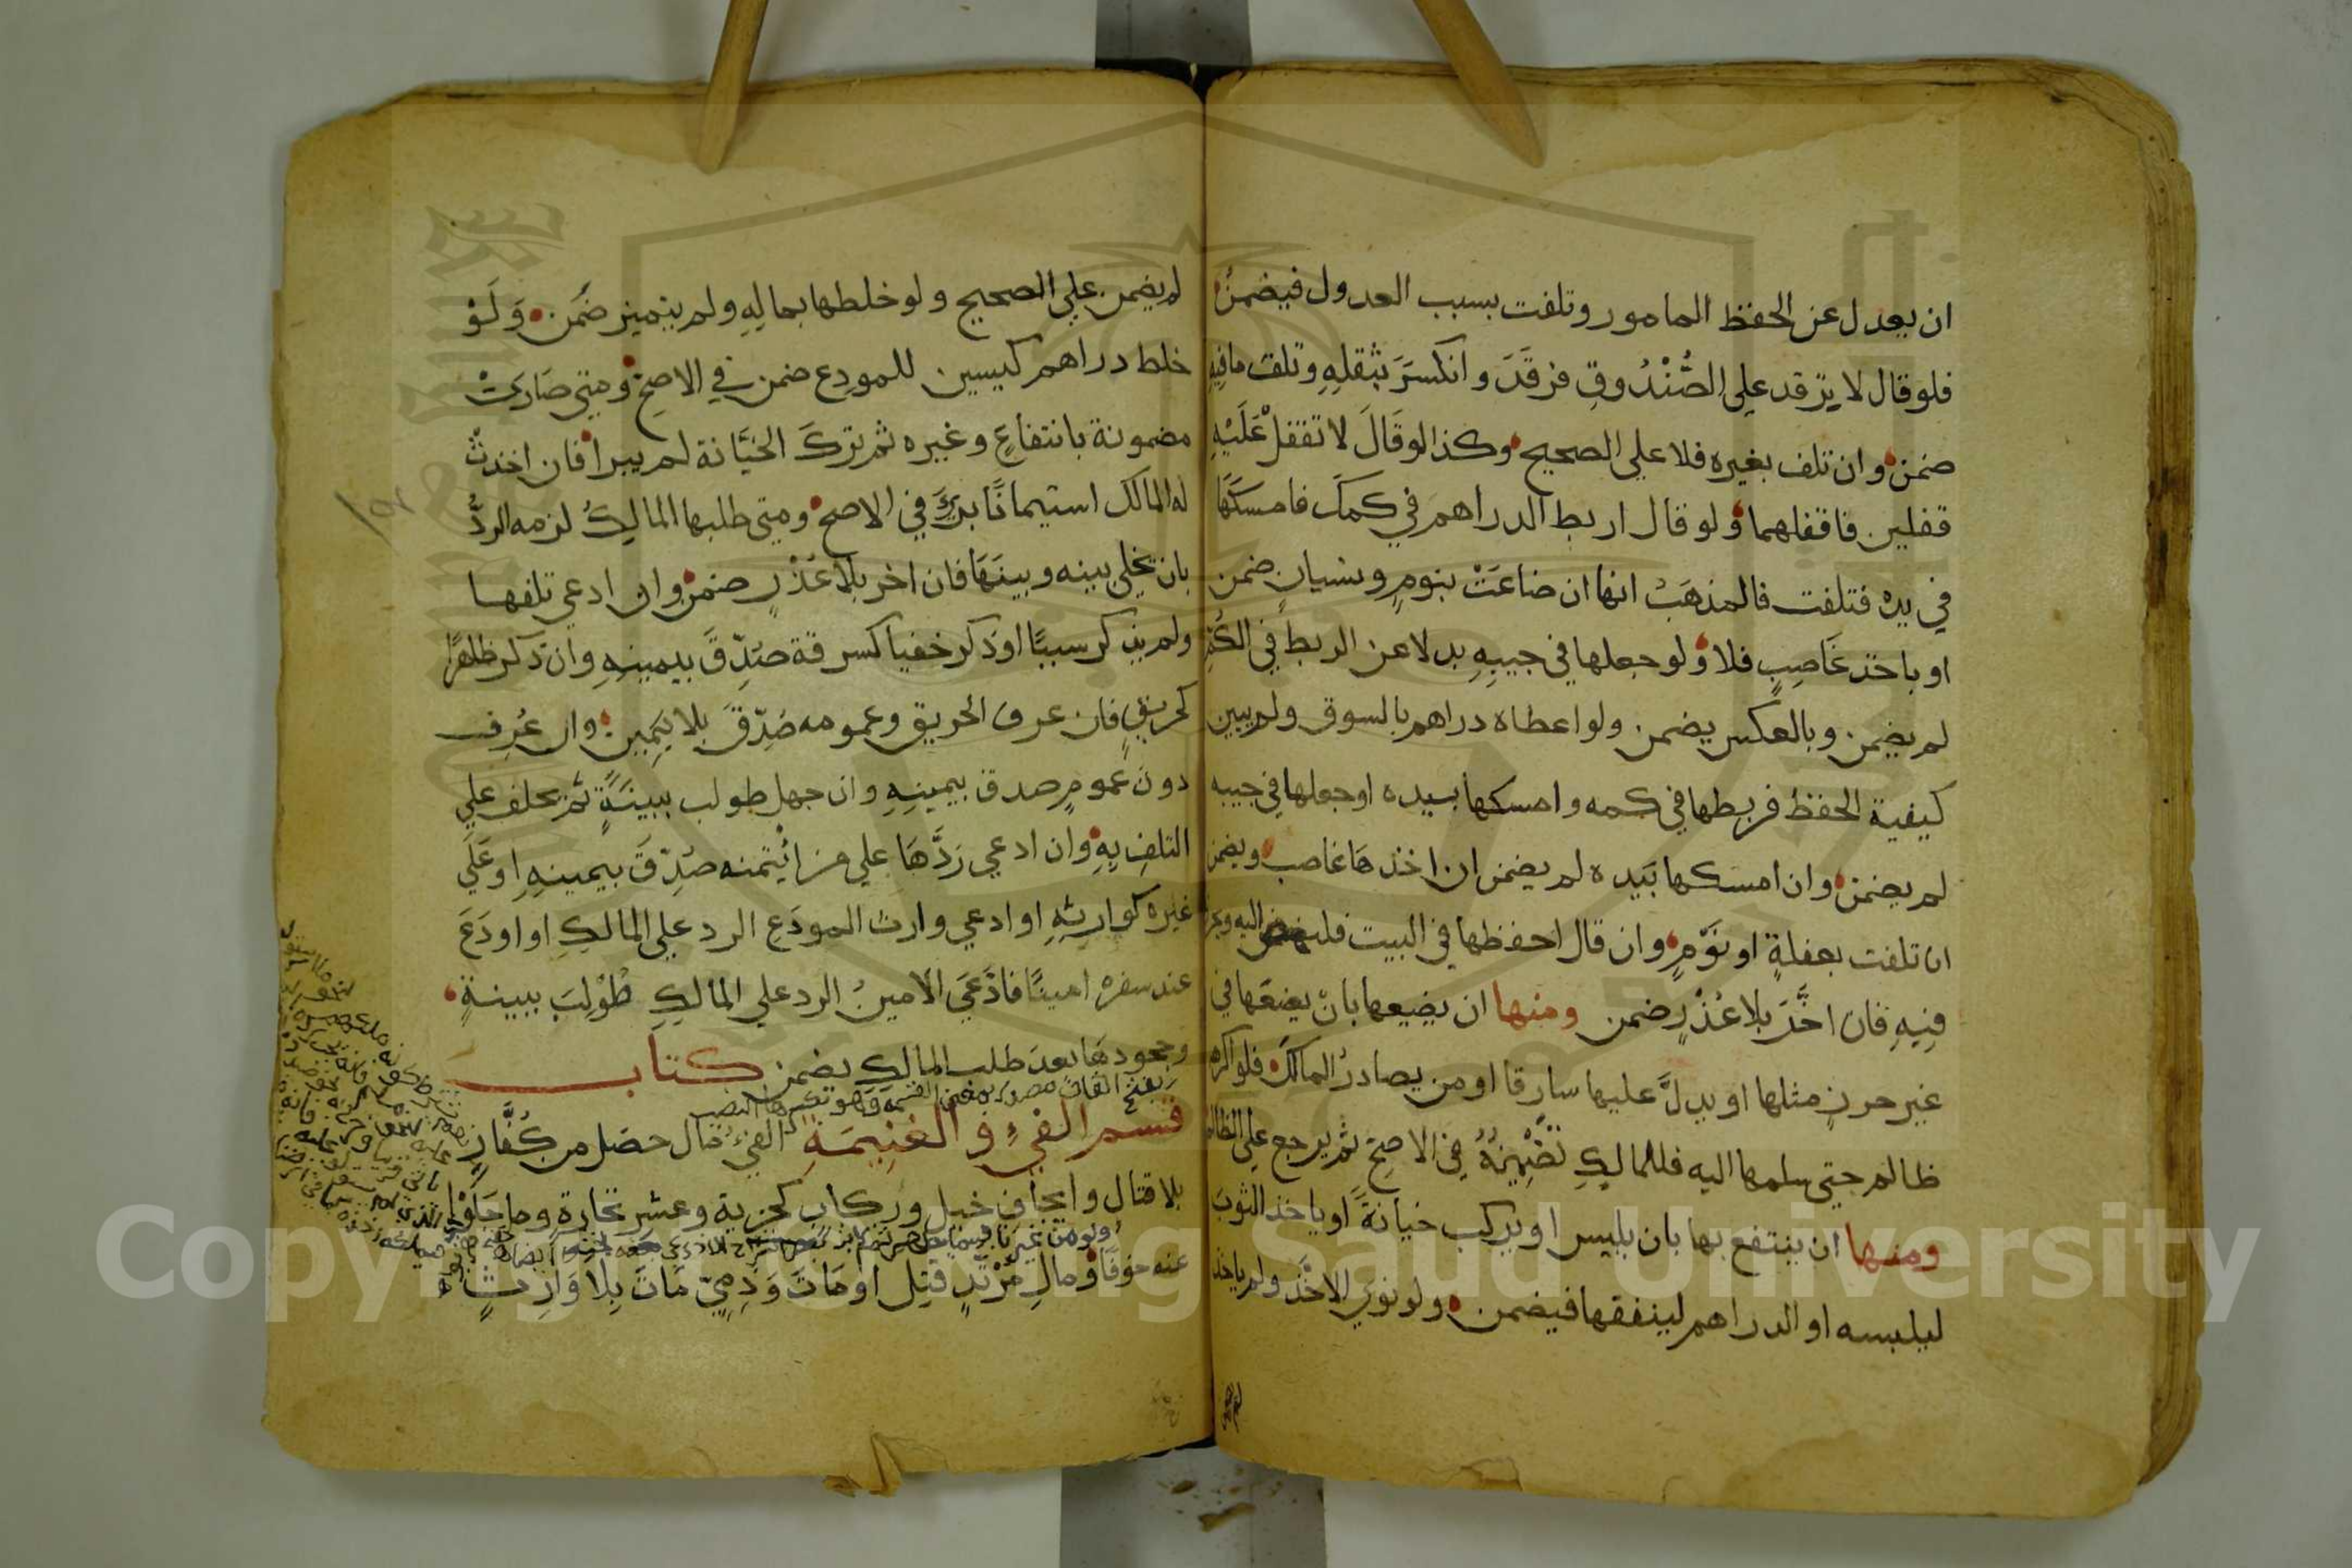 ان يعدل عن الحفظ المامور وتلفت بسبب العدول فيضمنُ
فلو قال لا يرقد علي الصُّنْدُوقِ فرقَدَ وانكسَرَ بثقلِهِ وتلف مافِيهِ
ضمن وان تلف بغيره فلا علي الصحيح وكذا لو قَالَ لا تقفلْ عَلَيْهِ
قفلين فاقفلهما ولو قال اربط الدراهم في كمك فامسكَهَا
في يده فتلفت فالمذهَبُ انها ان ضاعَتْ بنومٍ ونسيانٍ ضمن
او باخذ غَاصِبٍ فلا ولو جعلها في جيبِهِ بدلا عن الربط في الكُمّ
لم يضمن وبالعكس يضمن ولو اعطاه دراهم بالسوق ولم يبين
كيفية الحفظ فربطها في كمه وامسكها بيده او جعلها في جيبه
لم يضمن وان امسكها بَيده لم يضمن ان اخذها غاصب ويضمن
ان تلفت بغفلةٍ او نَوْمٍ وان قال احفظها في البيت فليمض اليه ويحرزها
فِيهِ فان اخَّرَ بلا عُذْرٍ ضمن ومنها ان يضيعها بانْ يضعَها في
غير حرزٍ مثلها او يدلَّ عليها سارقا او من يصادرُ المالكَ فلو اكره
ظالم حتي سلمها اليه فللمالِكِ تَضْمِينُهُ في الاصحِّ ثم يرجع علي الظالم
ومنها ان ينتفع بها بان يلبس او يركب خيانةً او ياخذ الثوبَ
ليلبسه او الدراهم لينفقها فيضمن ولو نوي الاخْذَ ولم ياخذ
لم يضمن علي الصحيح ولو خلطها بمالِهِ ولم يتميز ضَمَن وَلَوْ
خلط دراهم كيسين للمودِع ضمن في الاصحِّ ومتي صَارَتْ
مضمونة بانتفاعٍ وغيره ثم تركَ الخيَانة لم يبرا فان احدثْ
له المالك استيمانًا برئَ في الاصح ومتي طلبها المالِكُ لزمه الردُّ
بان يخلي بينه وبينَهَا فان اخر بلا عُذْرٍ ضمن وان ادعي تلفها
ولم يذكر سببًا او ذكر خفيا كسرقة صُدِّقَ بيمينِهِ وان ذكر ظاهرًا
كحريقٍ فان عرف الحريق وعمومه صُدِّقَ بلا يَمِينٍ وان عُرِف
دونَ عمومٍ صدق بيمينِهِ وان جهل طولب ببينَةٍ ثم يحلف علي
التلفِ بِهِ وان ادعي رَدَّهَا علي من ائْتمنه صُدِّقَ بيمينِهِ او عَلَي
غيره كوارثِهِ او ادعي وارث المودَعِ الرد علي المالكِ او اودَعَ
عند سفره امينًا فادَّعَي الامينُ الرد علي المالِكِ طُوْلِبَ ببينةٍ
وجحودهَا بعدَ طلب المالِكِ يضمن كتاب
بفتح القاف مصدر بمعني القسمة وهو بكسرها النصيب
قسم الفيءِ والغَنِيمَةِ الفيُ مال حصل من كُفَّارٍ
بلا قتالٍ وايجاف خيلٍ وركابٍ كجزيةٍ وعشر تجارةٍ وما جَلَوْا
عنه خوفًا ومالِ مُرْتَدٍّ قُتِل او مَاتَ وَذِمِّيّ مَاتَ بِلا وَارِثٍ
Copyright © King Saud University